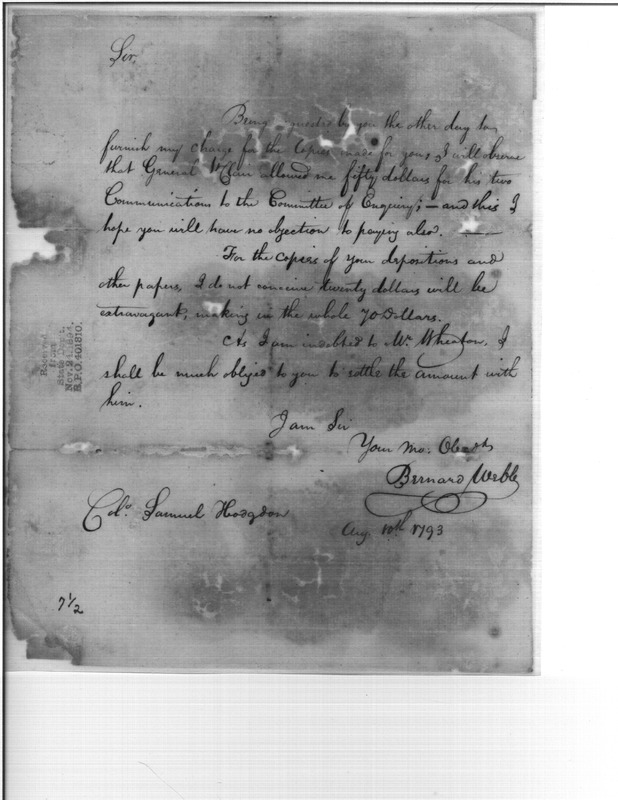 Sir,
Being requested by you the other day to
furnish my charge for the Copies made for you, I will observe
that General St Clair allowed me fifty dollars for his two
Communications to the Committee of Enquiry; — and this I
hope you will have no objection to paying also. —
For the Copies of your depositions and
other papers, I do not conceive twenty dollars will be
extravagant, making in the whole 70 Dollars.
As I am indebted to Mr. Wheaton, I
shall be much obliged to you to settle the amount with
him.
I am Sir
Your Mo: Obedt
Bernard Webb
Colo. Samuel Hodgdon
Aug. 10th 1793
7 1/2
Received
from
State Dept.
Nov. 24, 1894
R.P.O. 401810.